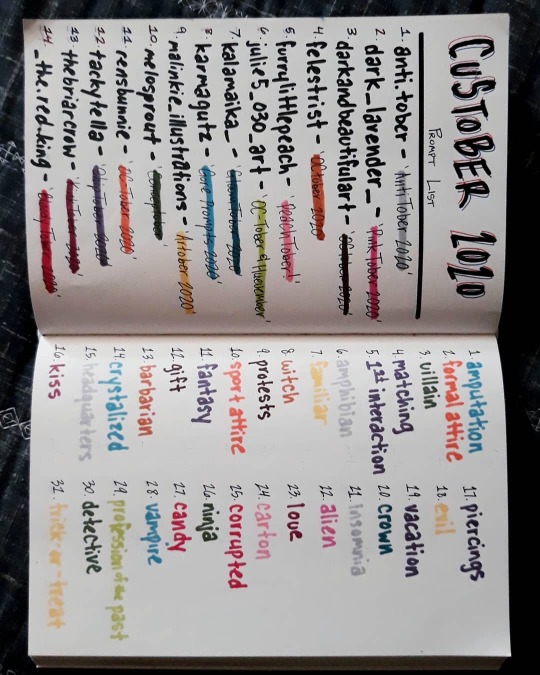 CUSTOBER 2020
PROMPT LIST
1. anti.tober - 'AntiTober 2020'
2. dark_lavender_ - 'PinkTober 2020'
3. darkandbeautifulart - 2020'
4. felestrist - 'OCtober 2020'
5. furrylittlepeach - 'PeachTober'
6. julie5_030_art - 'OC-Tober & Huevember'
7. kalamaika_ - 2020'
8. karmagutz - Prompts 2020'
9. malinkie_illustrations - 'Artober 2020'
10. melosprout -
11. rensbunnie - 'OCTober 2020'
12. tachytella - 2020'
13. thebriarcrow - 2020'
14. _the.red.king - 2020'
1. amputation
2. formal attire
3. villain
4. matching
5. 1st interaction
6. amphibian
7. familiar
8. witch
9. protests
10. sport attire
11. fantasy
12. gift
13. barbarian
14. crystalized
15. headquarters
16. kiss
17. piercings
18. evil
19. vacation
20. crown
21. insomnia
22. alien
23. love
24. carton
25. corrupted
26. ninja
27. candy
28. vampire
29. profession of the past
30. detective
31. trick-or-treat